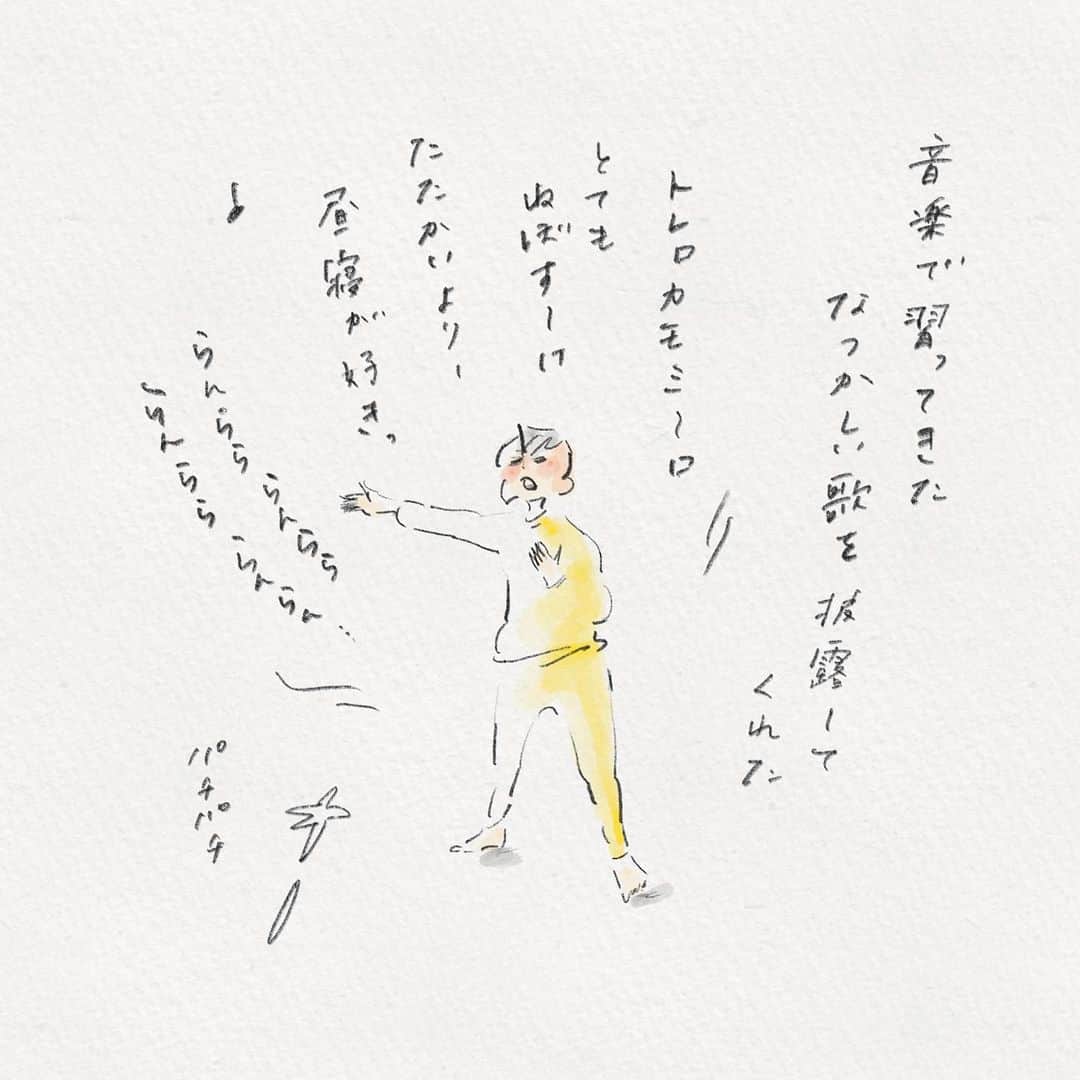 音楽で習ってきた
なつかしい歌を披露して
くれた
トレロカモミ〜ロ
とても
ねぼすーけ
たたかいよりー
昼寝が好きっ
よ
らんらららんらら
らんららららんらん‥
パチパチ